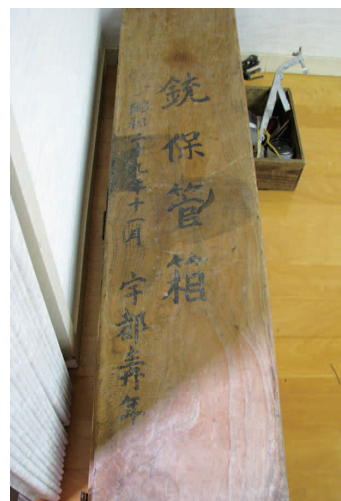 銃保管箱
昭和二十九年十一月 宇都 年